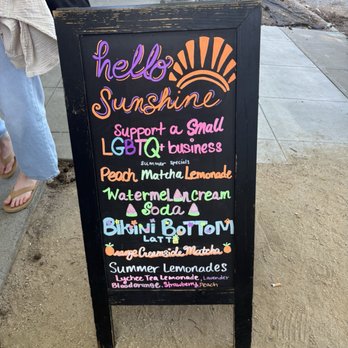 hello
Sunshine
Support a Small
LGBTQ+ business
Summer Specials
Peach Matcha Lemonade
Watermelon cream
Soda
Bikini Bottom
Latte
Orange Creamsicle Matcha
Summer Lemonades
Lychee Tea Lemonade, Lavender
Blood orange, Strawberry, Peach